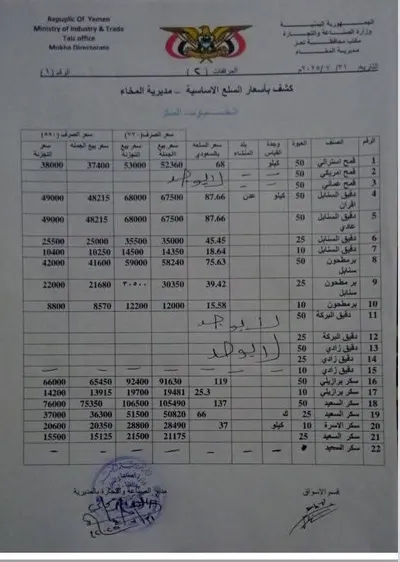 Republic OF Yemen
Ministry of Industry & Trade
Taiz office
Mokha Directorate
الجمهورية اليمنية
وزارة الصناعة والتجارة
مكتب محافظة تعز
مديرية المخاء
التاريخ: ٢١/ ٧ /٢٠٢٥م
المرفقات (٢)
الرقم (١)
كشف بأسعار السلع الاساسية – مديرية المخاء
الرقم الصنف العبوة وحدة القياس بلد المنشاء سعر السلعه بالسعودي سعر الصرف(٧٧٠) سعر الصرف (٥٥٠)
سعر بيع الجملة سعر بيع التجزئة سعر بيع الجملة سعر بيع التجزئة
1 قمح استرالي 50 كيلو 68 52360 53000 37400 38000
2 قمح امريكي 50 لا يوجد
3 قمح عماني 50
4 دقيق السنابل افران 50 كيلو عدن 87.66 67500 68000 48215 49000
5 دقيق السنابل عادي 50 87.66 67500 68000 48215 49000
6 دقيق السنابل 25 45.45 35000 35500 25000 25500
7 دقيق السنابل 10 18.64 14350 14500 10250 10400
8 بر مطحون سنابل 50 75.63 58240 59000 41600 42000
9 بر مطحون سنابل 25 39.42 30350 ٣٠٥٠٠ 21680 22000
10 بر مطحون 10 15.58 12000 12200 8570 8800
11 دقيق البركة 50 لا يوجد
12 دقيق البركة 25
13 دقيق زادي 50 لا يوجد
14 دقيق زادي 25
15 دقيق زادي 10 – – – – –
16 سكر برازيلي 50 119 91630 92400 65450 66000
17 سكر برازيلي 10 25.3 19481 19700 13915 14200
18 سكر السعيد 50 137 105490 106500 75350 76000
19 سكر السعيد 25 ك 66 50820 51500 36300 37000
20 سكر الاسرة 10 كيلو 37 28490 28800 20350 20600
21 سكر السعيد 25 21175 21500 15125 15500
22 سكر السعيد – – – – –
قسم الاسواق
مدير الصناعة والتجارة بالمديرية